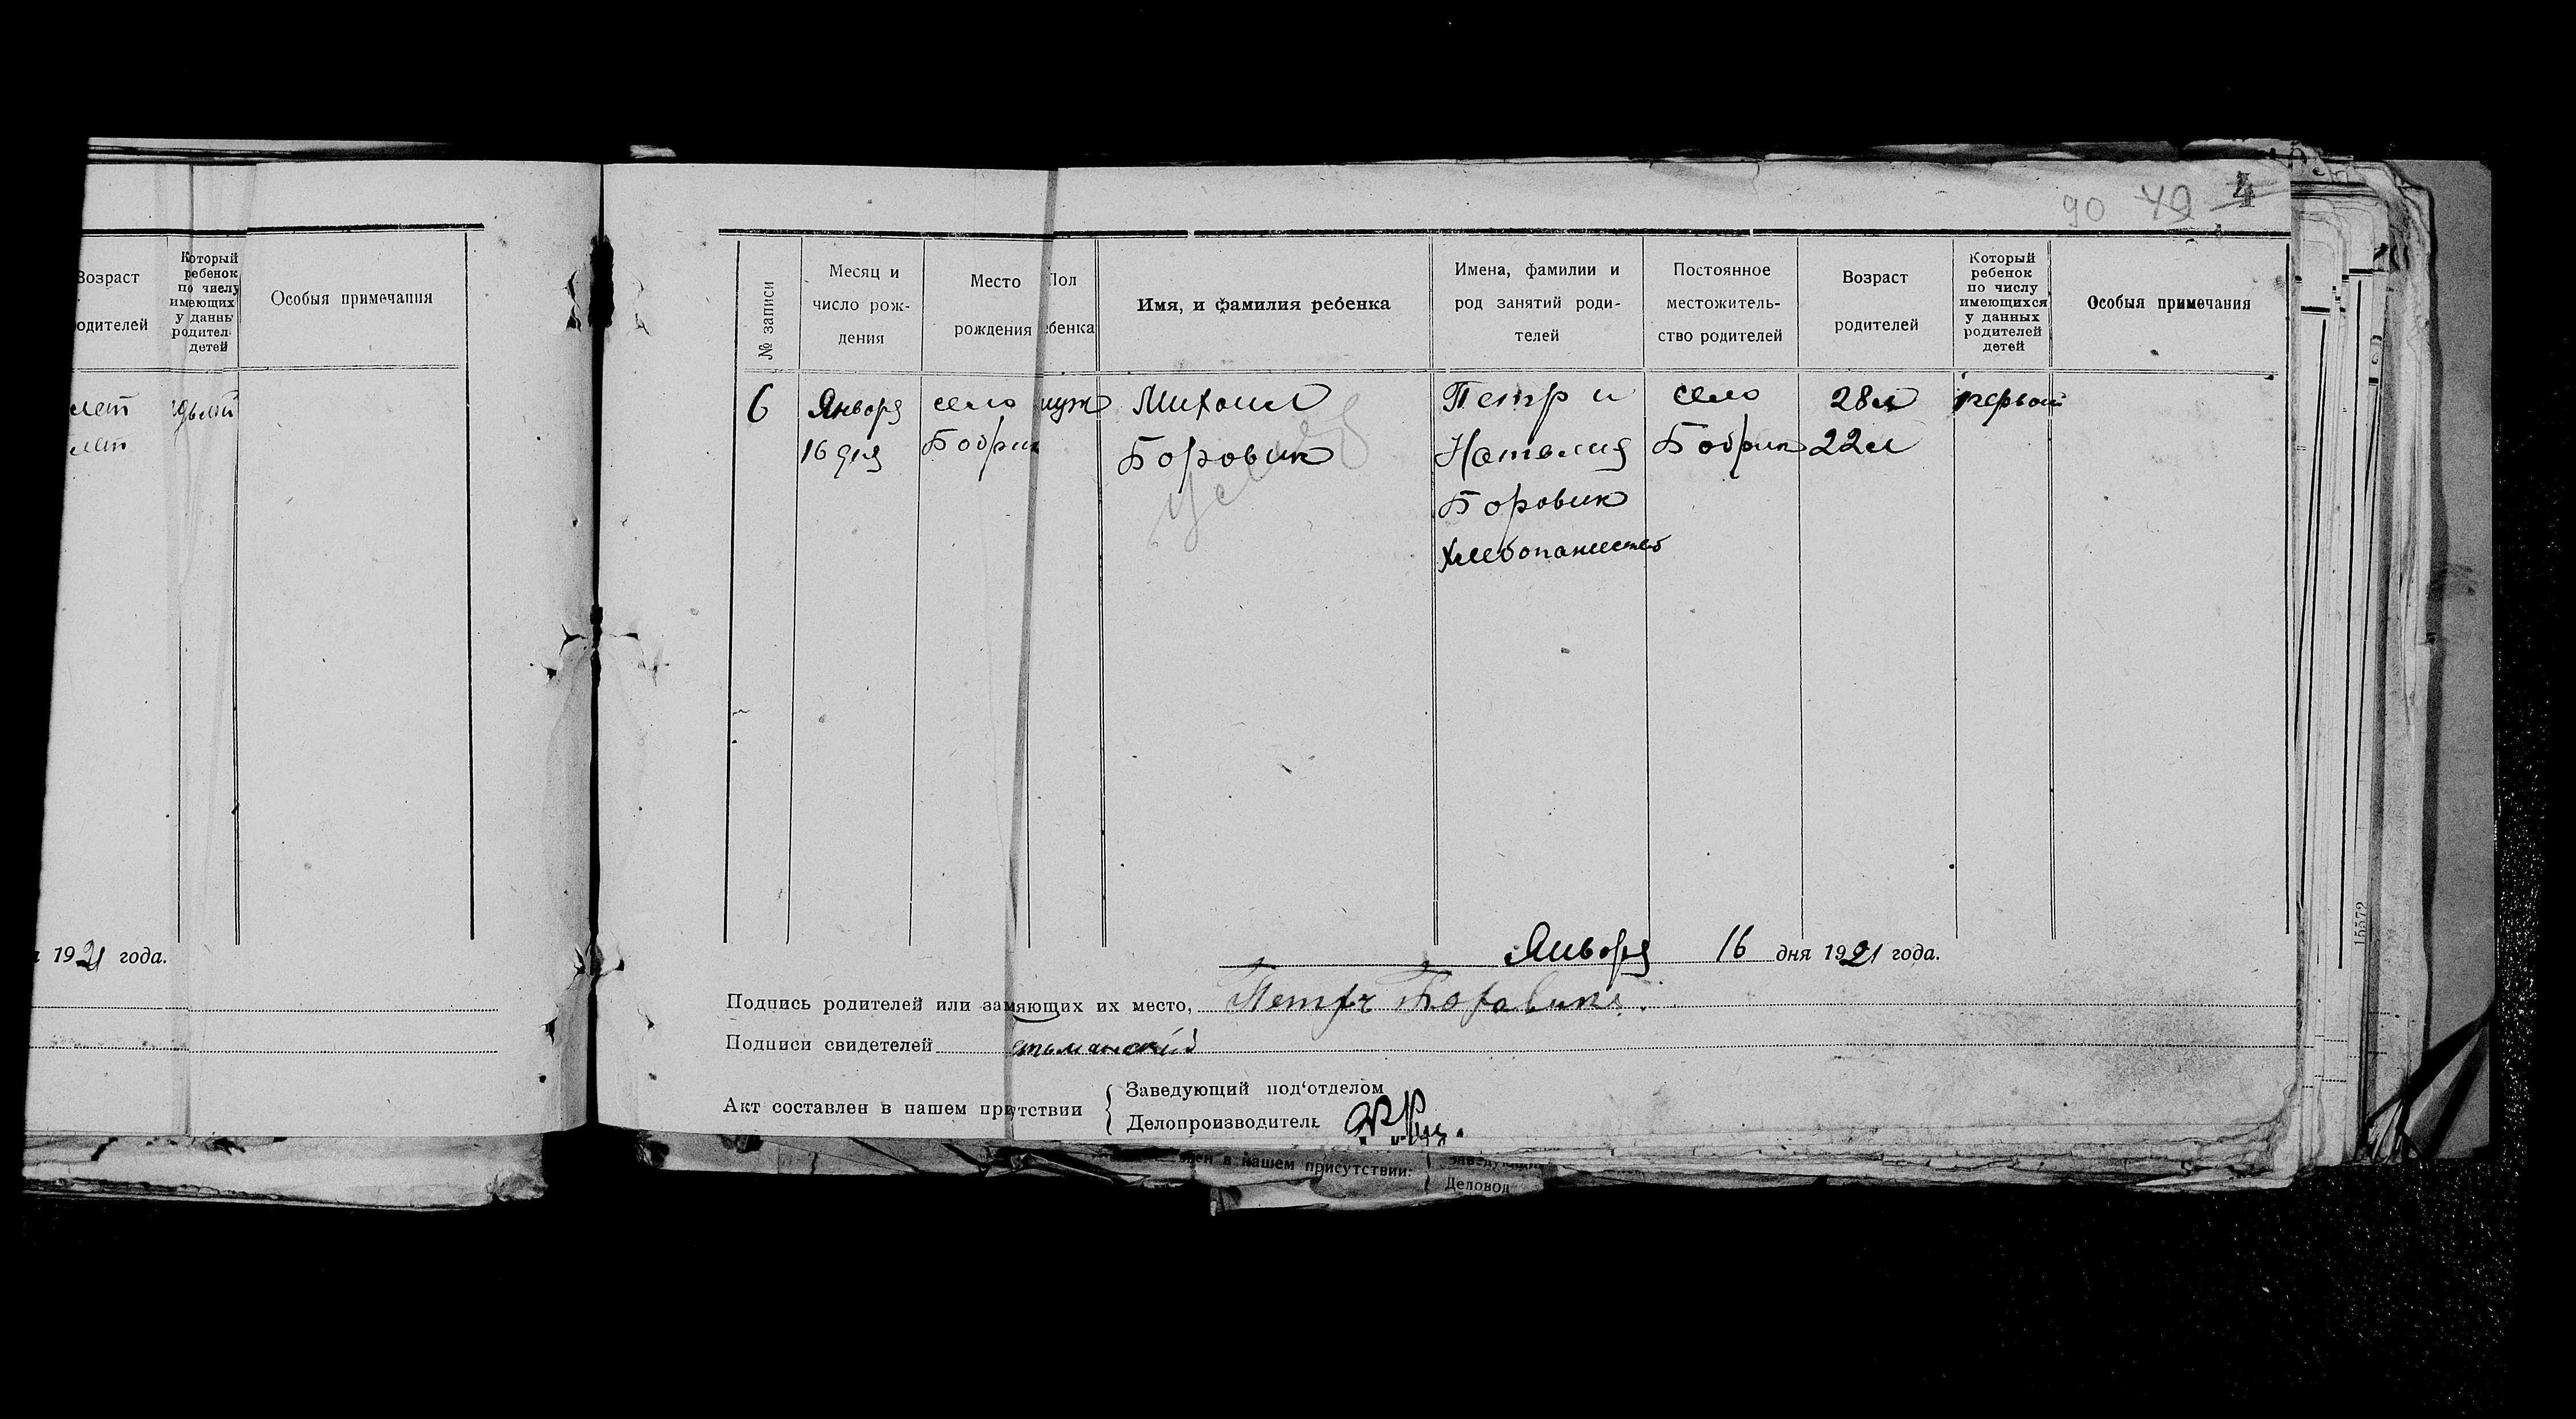 Возраст
одителей
Который
ребенок
по числу
имеющих
у данны
родител
детей
Особыя примечания
лет
лет
1921 года.
90 49 4
№ записи
Месяц и
число рож-
дения
Место
рождения
Пол
ебенка
Имя, и фамилия ребенка
Имена, фамилии и
род занятий роди-
телей
Постоянное
местожитель-
ство родителей
Возраст
родителей
Который
ребенок
по числу
имеющихся
у данных
родителей
детей
Особыя примечания
6
Января
16 дня
село
Бобрик
муж
Михаил
Боровик
умер
Петр и
Наталия
Боровик
хлебопашество
село
Бобрик
28 л
22 л
первый
Января 16 дня 1921 года.
Подпись родителей или замяющих их место, Петр Боровик.
Подписи свидетелей
Акт составлен в нашем пристствии
Заведующий под‘отделом
Делопроизводитель
ен в нашем присутствии:
Заведующий
Деловод
15572